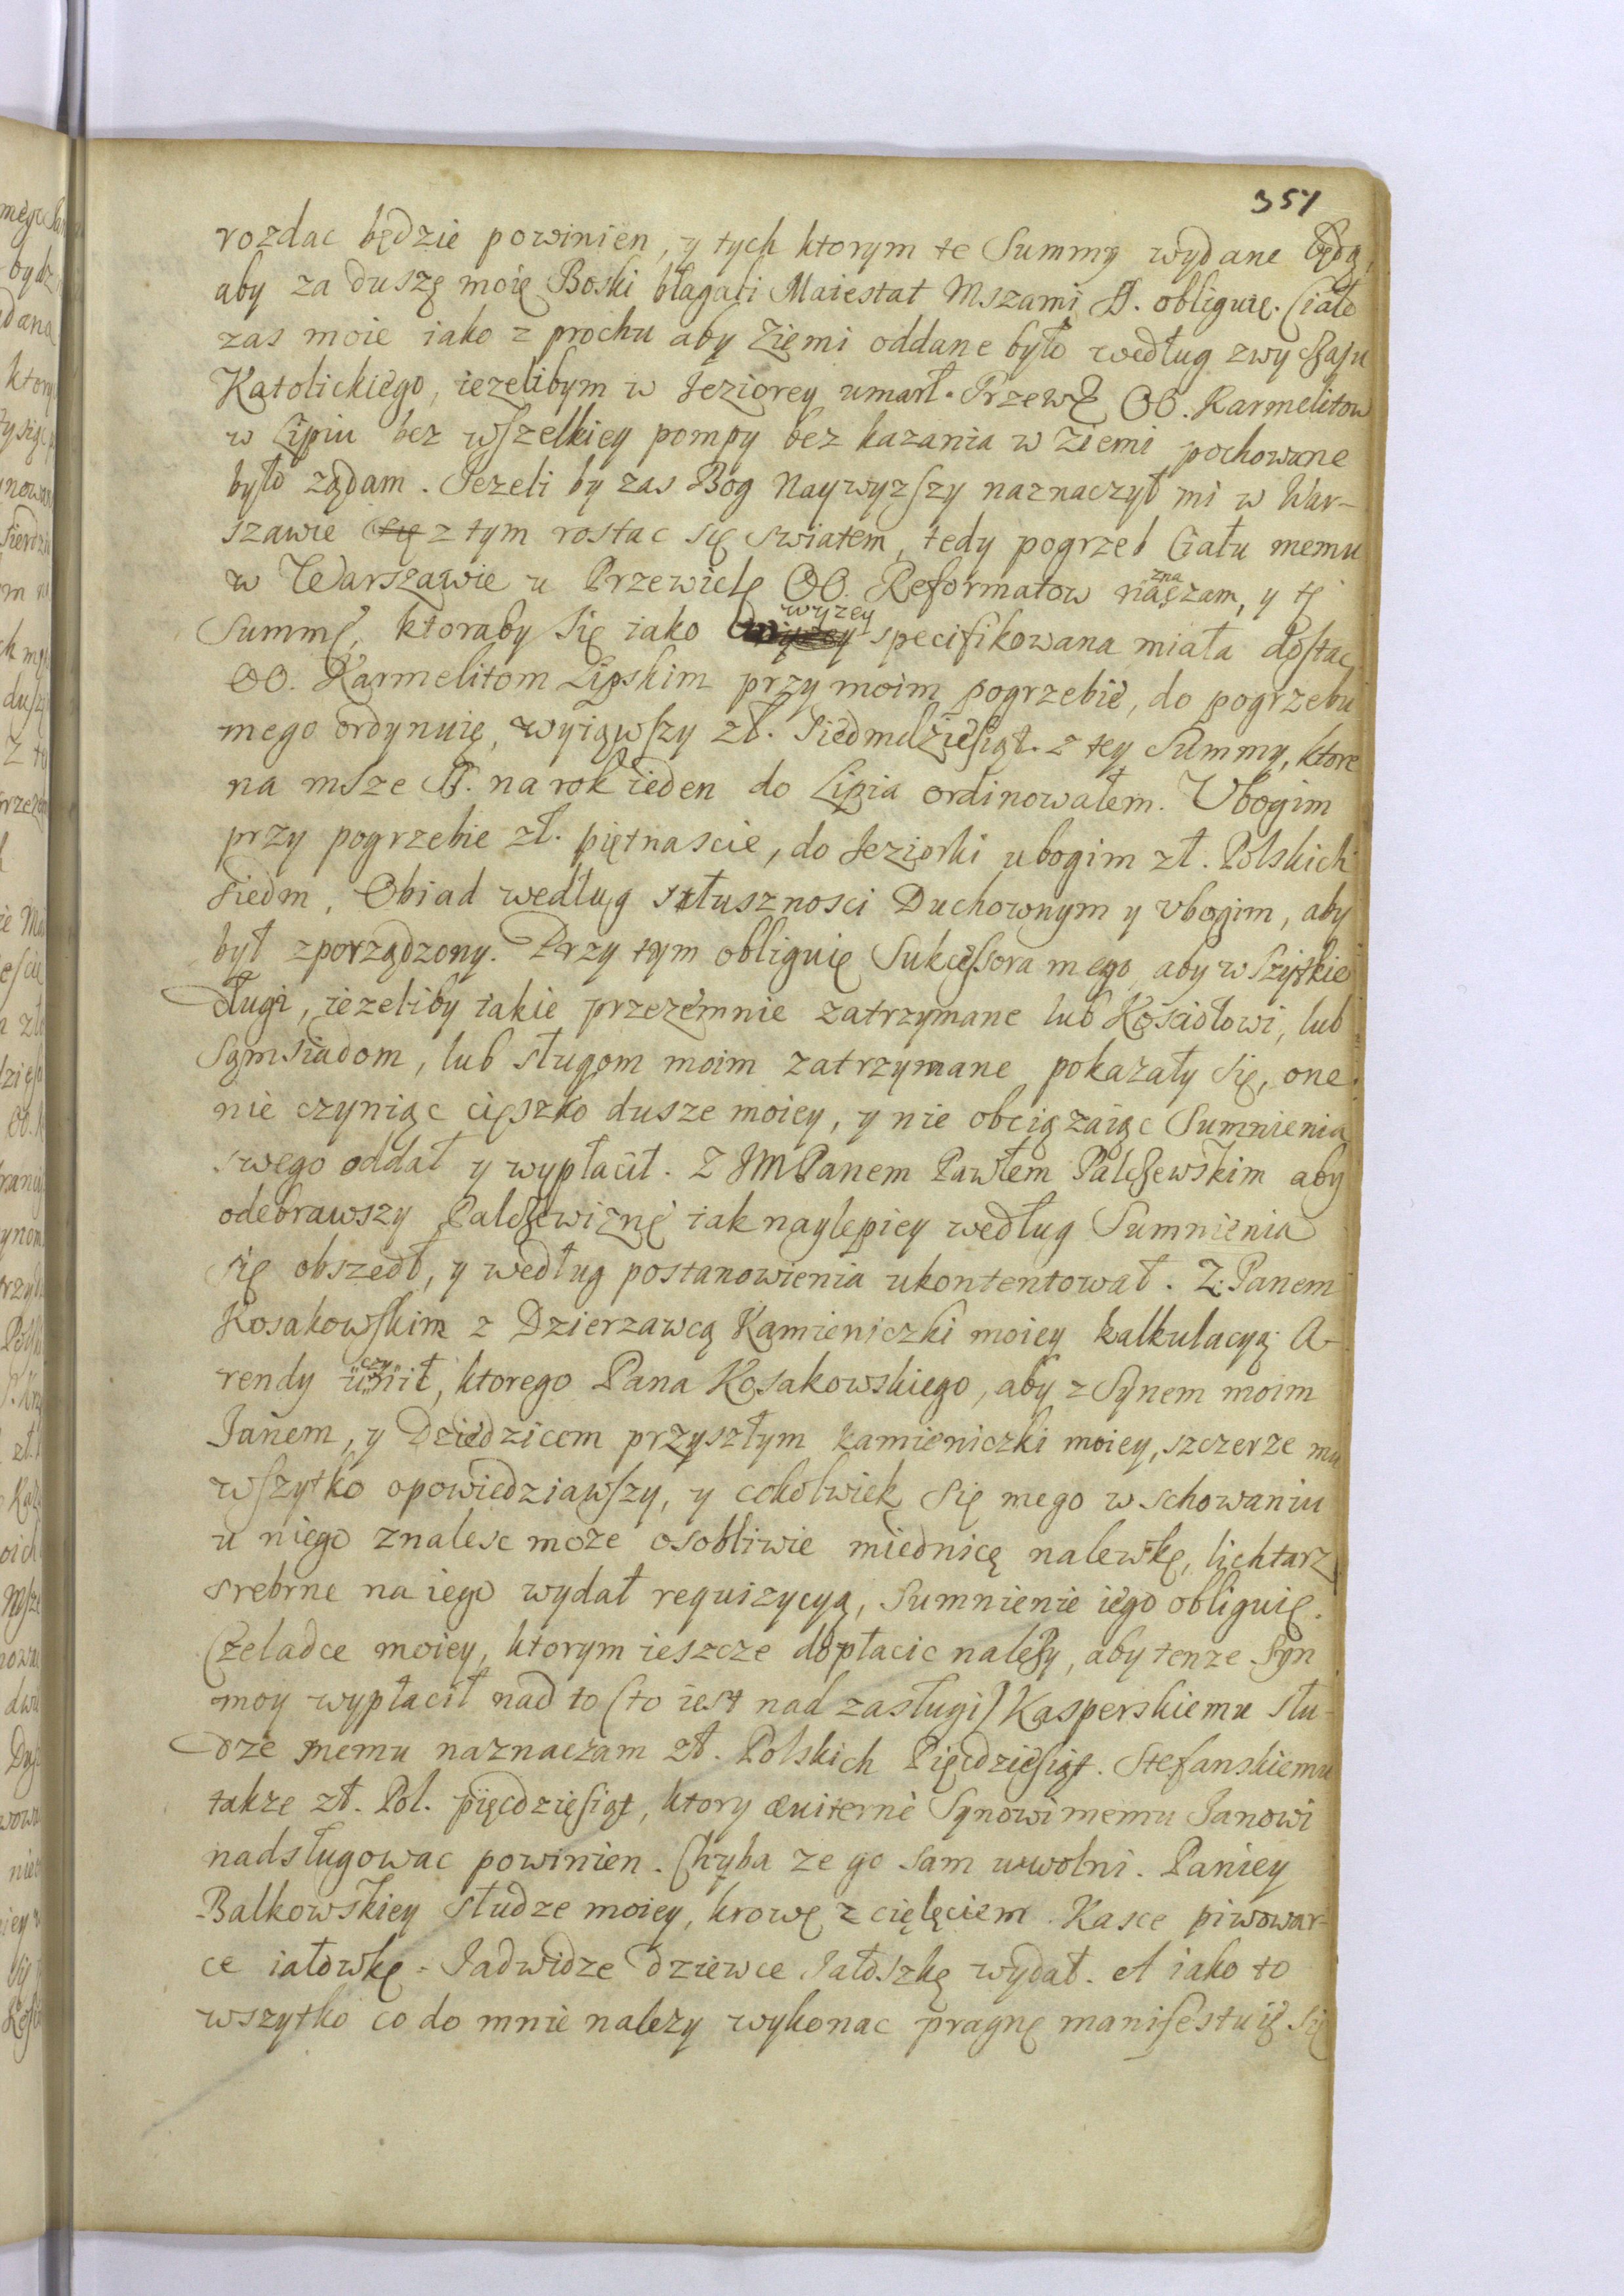 351
rozdac będzie powinien, y tych ktorym te Summy wydane będą,
aby za duszę moię Boski błagali Maiestat Mszami S. obliguię. Ciało
zas moie iako z prochu aby Ziemi oddane było według zwyczaju
Katolickiego, iezelibym w Jeziorey umarł. Przewę OO. Karmelitow
w Lipiu bez wszelkiey pompy bez kazania w Ziemi pochowane
było ządam. Jezeli by zas Bog Naywyzszy naznaczył mi w War-
szawie się z tym rostac się swiatem, tedy pogrzeb Ciału memu
w Warszawie u Przewielę OO. Reformatow naznaczam, y tę
Summę, ktoraby się iako wyzey specifikowana miała dostac
OO. Karmelitom Lipskim przy moim pogrzebie, do pogrzebu
mego ordynuię, wyiąwszy zł. Siedmdziesiąt. z tey Summy, ktore
na msze S. na rok ieden do Lipia ordinowałem. Vbogim
przy pogrzebie zł. piętnascie, do Jeziorki ubogim zł. Polskich
siedm, Obiad według słusznosci Duchownym y vbogim, aby
był zporządzony. Przy tym obliguię Sukcessora mego, aby wszytkie
długi, iezeliby iakie przezemnie zatrzymane lub Kościołowi, lub
Sąmsiadom, lub sługom moim zatrzymane pokazały się, one
nie czyniąc cięszko dusze moiey, y nie obciązaiąc Sumnienia
swego oddał y wypłacił. Z JMPanem Pawłem Palczewskim aby
odebrawszy Palczewiznę iak naylepiey według Sumnienia
się obszedł, y według postanowienia ukontentował. Z Panem
Kosakowskim z Dzierzawcą Kamieniczki moiey kalkulacyą A-
rendy uczynił, ktorego Pana Kosakowskiego, aby z Synem moim
Janem, y Dziedzicem przyszłym kamieniczki moiey, szczerze mu
wszytko opowiedziawszy, y cokolwiek się mego w schowaniu
u niego znalesc moze osobliwie miednicę nalewkę, lichtarz
srebrne na iego wydał requizycyą, Sumnienie iego obliguię.
Czeladce moiey, ktorym ieszcze dopłacic nalezy, aby tenze Syn
moy wypłacił nad to (to iest nad zasługi) Kasperskiemu słu-
dze memu naznaczam zł. Polskich Pięcdziesiąt. Stefanskiemu
takze zł. Pol. pięcdziesiąt, ktory æuiternè Synowi memu Janowi
nadsługowac powinien. Chyba ze go sam uwolni. Paniey
Balkowskiey słudze moiey, krowę z cięlęciem. Kasce piwowar-
ce iałowkę. Jadwidze Dziewce Jałoszkę wydał. A iako to
wszytko co do mnie nalezy wykonac pragnę manifestuię się